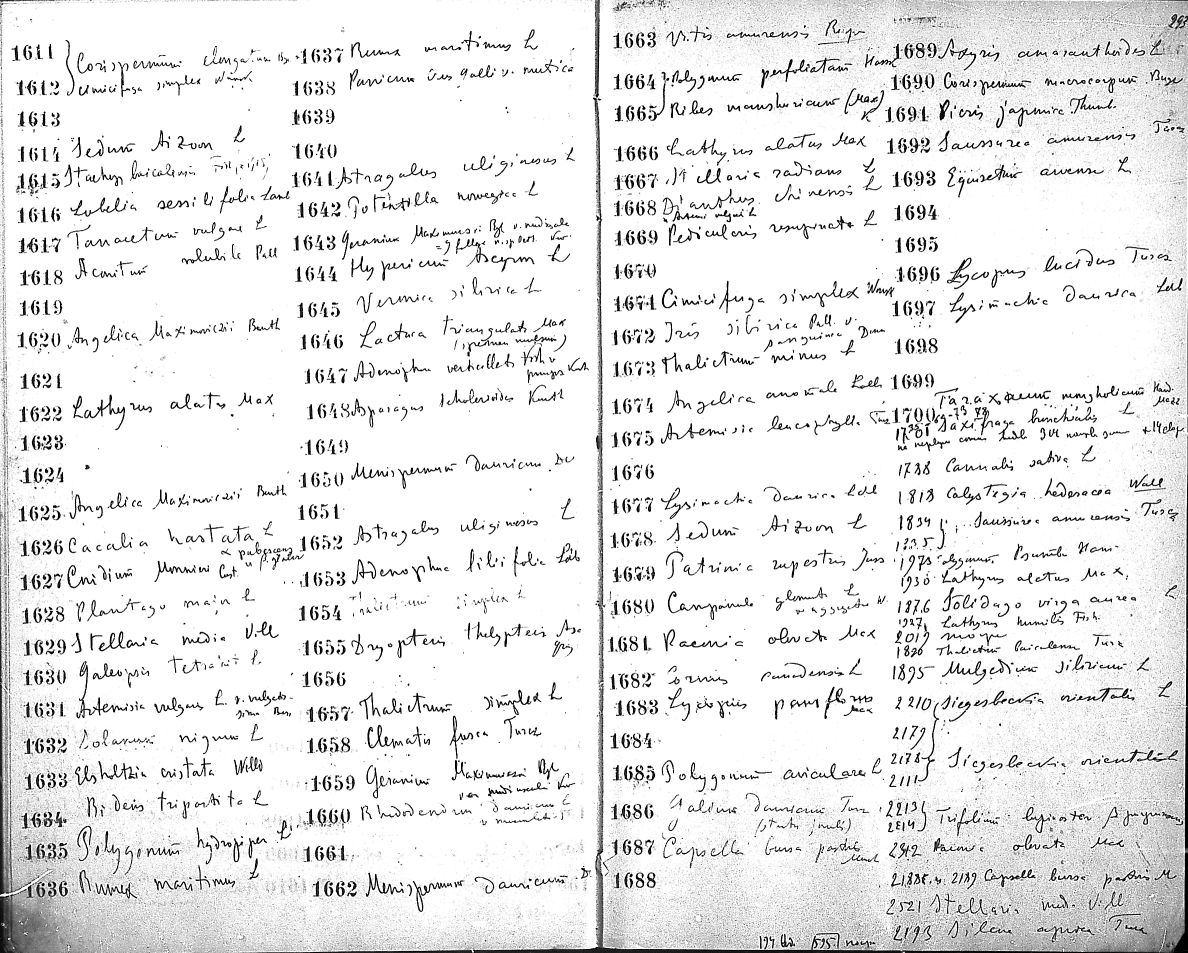 1611 Corispermum elongatum Bge
1612 Cimicifuga simplex Wormsk
1613
1614 Sedum Aizoon L
1615 Stachys baicalensis Fisch
1616 Lobelia sessilifolia Lamb
1617 Tanacetum vulgare L
1618 Aconitum volubile Pall
1619
1620 Angelica Maximoviczii Benth
1621
1622 Lathyrus alatus Max
1623
1624
1625 Angelica Maximoviczii Benth
1626 Cacalia hastata L
α pubescens
1627 Cnidium Monnieri Cust. β. glabra
1628 Plantago major L
1629 Stellaria media Vill
1630 Galeopsis Tetrahit L.
1631 Artemisia vulgaris L v. vulgatis-
sima Bess
1632 Solanum nigrum L
1633 Elsholtzia cristata Willd
1634 Bidens tripartita L
1635 Polygonum hydropiper L
1636 Rumex maritimus L
1637 Rumex maritimus L
1638 Panicum Crus galli v. mutica
1639
1640
1641 Astragalus uliginosus L
1642 Potentilla norwegica L
1643 Geranium Maximoviczii Rgl v.
1644 Hypericum Ascyron L
1645 Veronica sibirica L
1646 Lactuca triangulata Max
1647 Adenophora verticillata Fisch v
1648 Asparagus schoberioides Kunth
1649
1650 Menispermum dauricum DC
1651
1652 Astragalus uliginosus L
1653 Adenophora liliifolia Ldb
1654 Thalictrum simplex L
1655 Dryopteris thelypteris Asa
Gray
1656
1657 Thalictrum simplex L
1658 Clematis fusca Turcz
1659 Geranium Maximoviczii Rgl
1660 Rhododendron dauricum L
1661
1662 Menispermum dauricum D
1663 Vitis amurensis Rupr
1664 Polygonum perfoliatum Hassk
1665 Ribes manshuricum (Max)
K
1666 Lathyrus alatus Max
1667 Stellaria radians L
1668 Dianthus chinensis L
Artemis vulgaris L
1669 Pedicularis resupinata L
1670
1671 Cimicifuga simplex Wrmsk
1672 Iris sibirica Pall. v.
sanguinea Donn
1673 Thalictrum minus L
1674 Angelica anomala Lall
1675 Artemisia leucophylla Turcz
1676
1677 Lysimachia Daurica Ldb
1678 Sedum Aizoon L
1679 Patrinia rupestris Juss
1680 Campanula glomerata L
1681 Paeonia obovata Max
1682 Cornus canadensis L
1683 Lycopus parviflorus
Max
1684
1685 Polygonum aviculare L
1686 Galium Dauricum Turcz
1687 Capsella bursa pastoris
Mnch
1688
293
1689 Axyris amaranthoides L
1690 Corispermum macrocarpum Bunge
1691 Pieris japonica Thunb.
1692 Saussurea amurensis Turcz
1693 Equisetum arvense L
1694
1695
1696 Lycopus lucidus Turcz
1697 Lysimachia Daurica Ldb
1698
1699
1700 Taraxacum mongholicum Hand
Mazz
1701 Saxifraga bronchialis L
1788 Cannabis sativa L
1818 Calystegia hederacea Wall
1834 Saussurea amurensis Turcz
1835
1975 Polygonum
1930 Lathyrus alatus Max.
1876 Solidago virga aurea L
1927 Lathyrus humilis Fisch
2019
1896 Thalictrum baicalense Turcz
1895 Mulgedium sibiricum L
2210 Siegesbeckia orientalis L
2179
2178 Siegesbeckia orientalis L
2111
2213 Trifolium lupinaster
2214
2912 Paeonia obovata Max
2188 2189 Capsella bursa pastoris M
2521 Stellaria med. Vill
2193 Silene Turcz